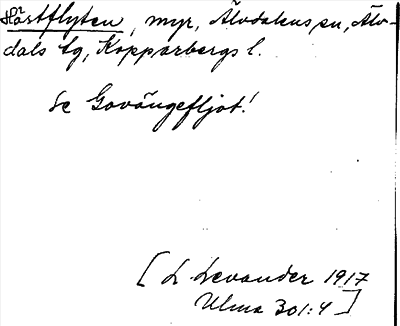 Hårstflyten, myr, Älvdalens sn, Älv-
dals tg, Kopparbergs l.
Se Govängefljot!
[L. Levander 1917
Ulma 301:4]